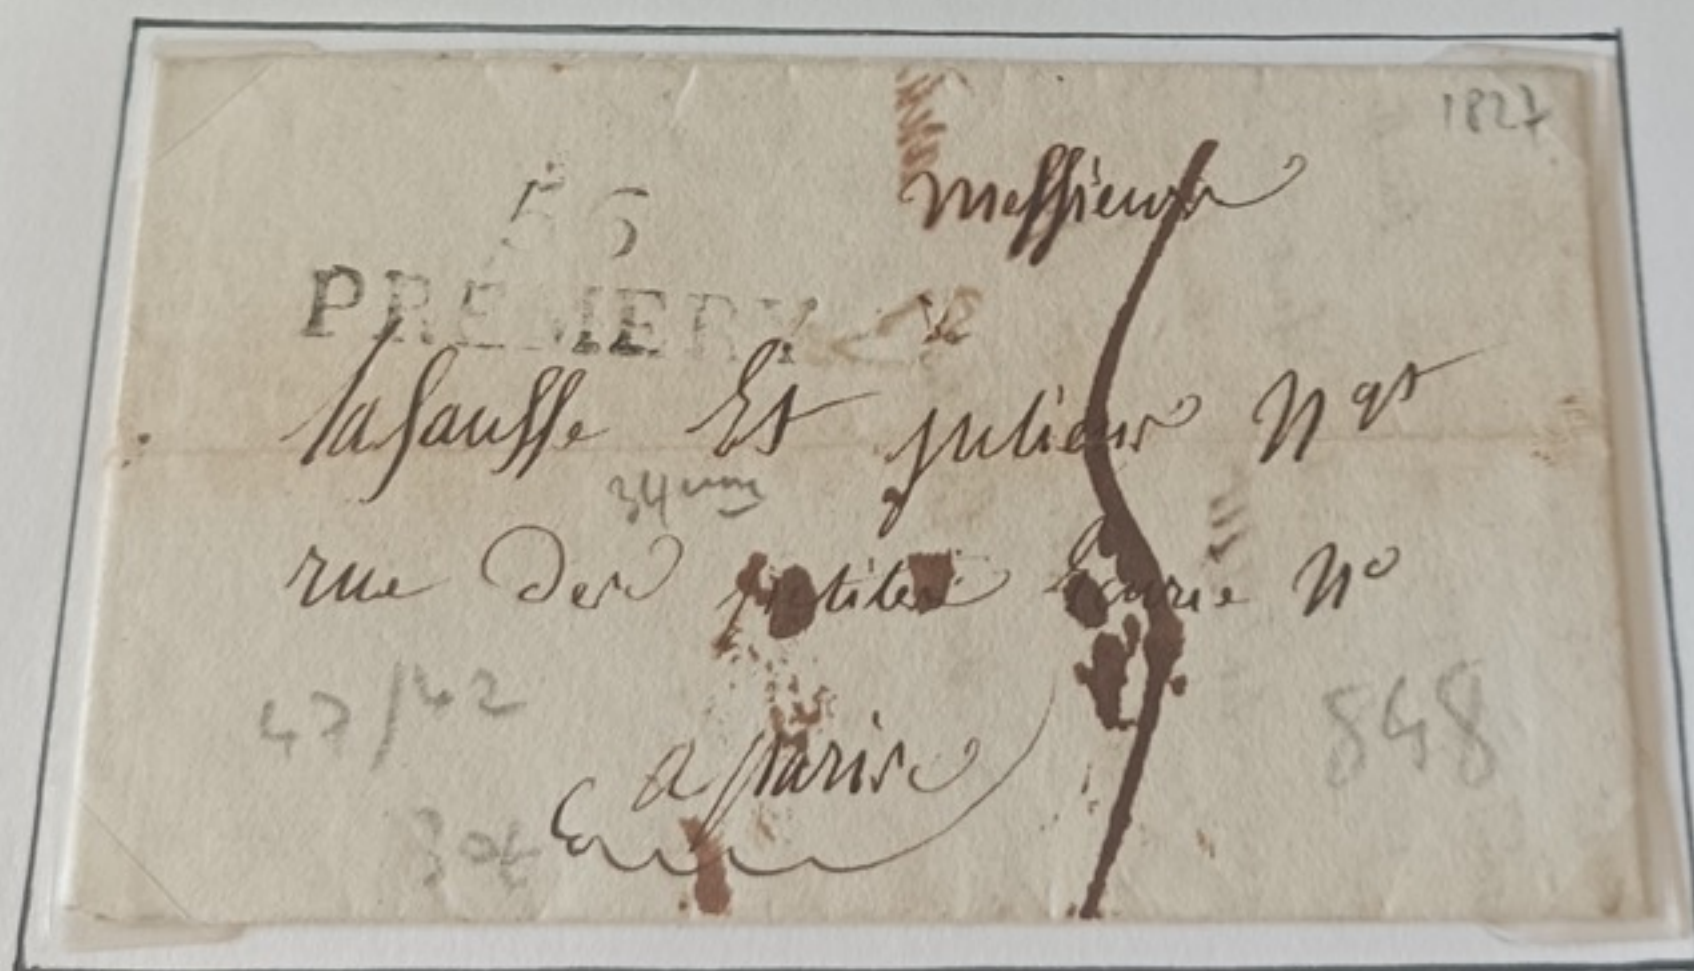 1827
56
PREMERY
Messieurs
lafausse Et julien Ngt
34 mm
rue des petites Ecurie No
47/42
548
a paris
30€